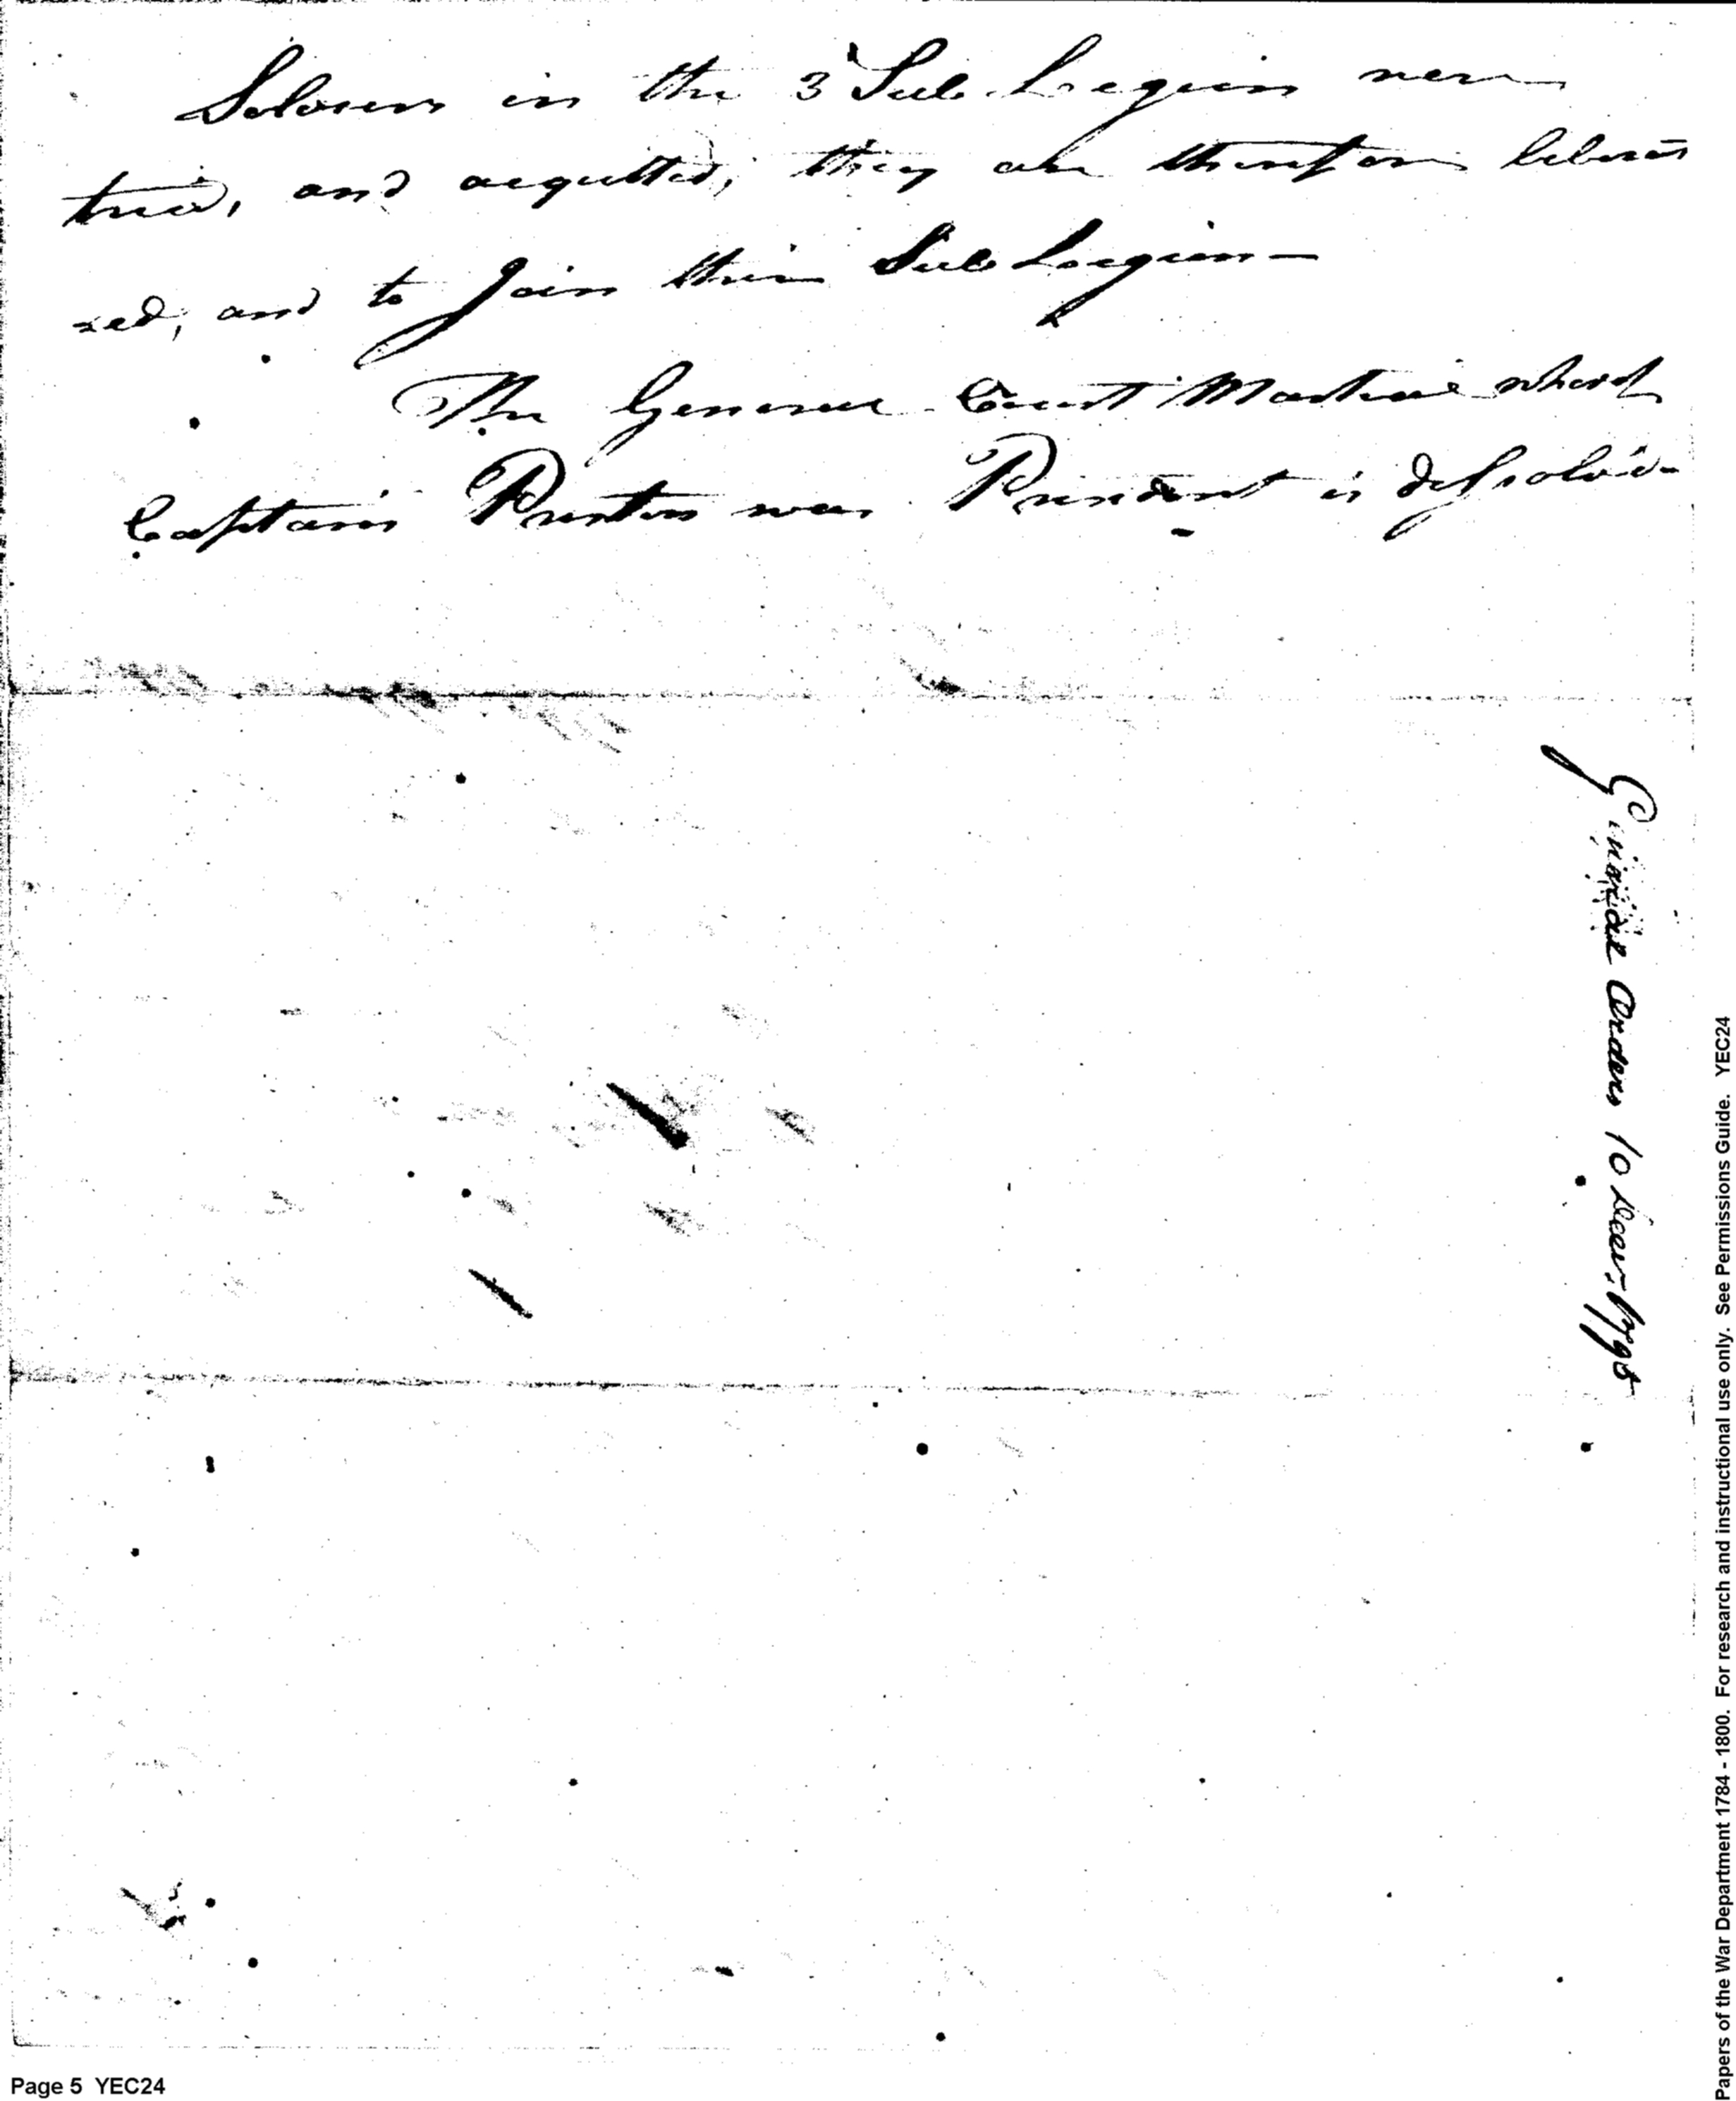 Soldiers in the 3 Sub Legion were
tried, and acquitted, they are therefore libera
ted, and to Join their Sub Legion—
The General Court Martial whereof
Captain Preston was President is dissolved
General Orders 10 Decem- 1795
Papers of the War Department 1784 - 1800. For research and instructional use only. See Permissions Guide. YEC24
Page 5 YEC24